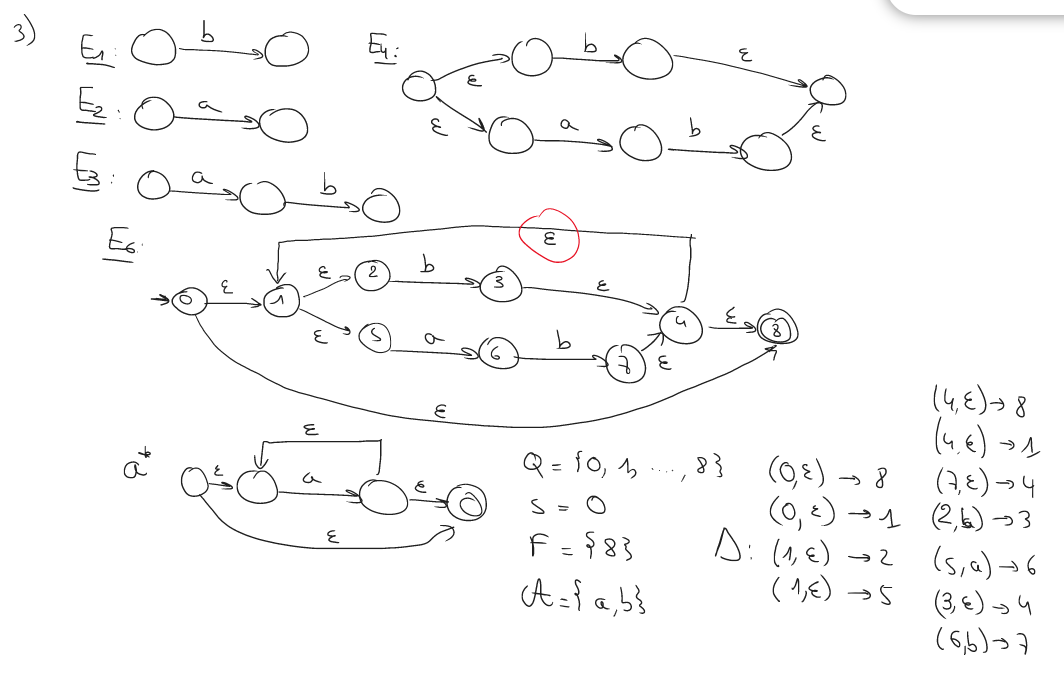 3)
E₁: b
E₂: a
E₃: a b
E₄: ε b ε
ε a b ε
E₆: ε
0 ε 1 ε 2 b 3 ε 4 ε 8
ε 5 a 6 b 7 ε
ε
a* ε
ε a ε
ε
Q = {0, 1, ...., 8}
S = 0
F = {8}
A = {a, b}
Δ:
(0, ε) → 8
(0, ε) → 1
(1, ε) → 2
(1, ε) → 5
(4, ε) → 8
(4, ε) → 1
(7, ε) → 4
(2, b) → 3
(5, a) → 6
(3, ε) → 4
(6, b) → 7